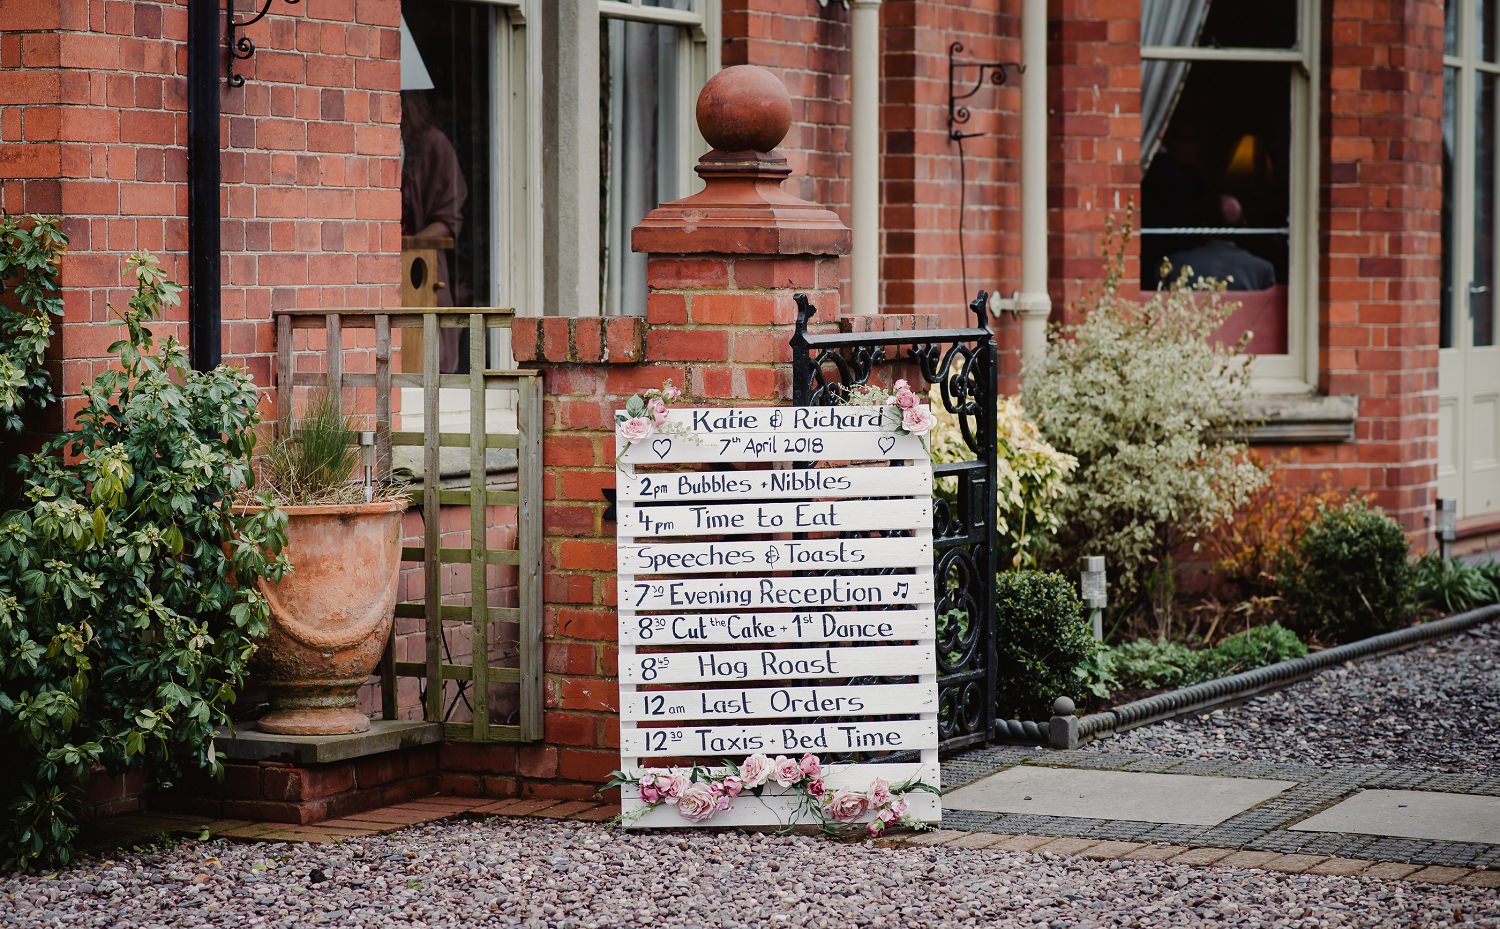 Katie & Richard
7th April 2018
2pm Bubbles + Nibbles
4pm Time to Eat
Speeches & Toasts
7³⁰ Evening Reception
8³⁰ Cut the Cake + 1st Dance
8⁴⁵ Hog Roast
12am Last Orders
12³⁰ Taxis + Bed Time